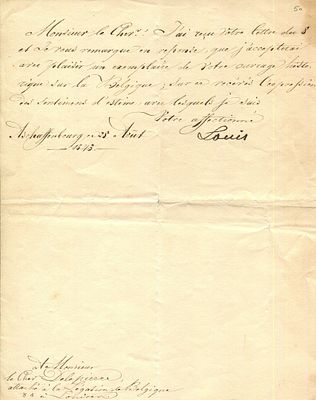 50
Monsieur le Cher. J'ai reçu Votre lettre du 8
et Je vous remarque en reponse, que j'accepterai
avec plaisir un exemplaire de Votre ouvrage histo-
rique sur la Belgique; sur ce recevés l'expression
des sentimens d'estime avec lesquels je suis
Votre affectionné
Aschaffenbourg ce 28 Août
Louis
1843
A Monsieur
le Cher Delepierre
attaché à la Legation de Belgique
à Londres